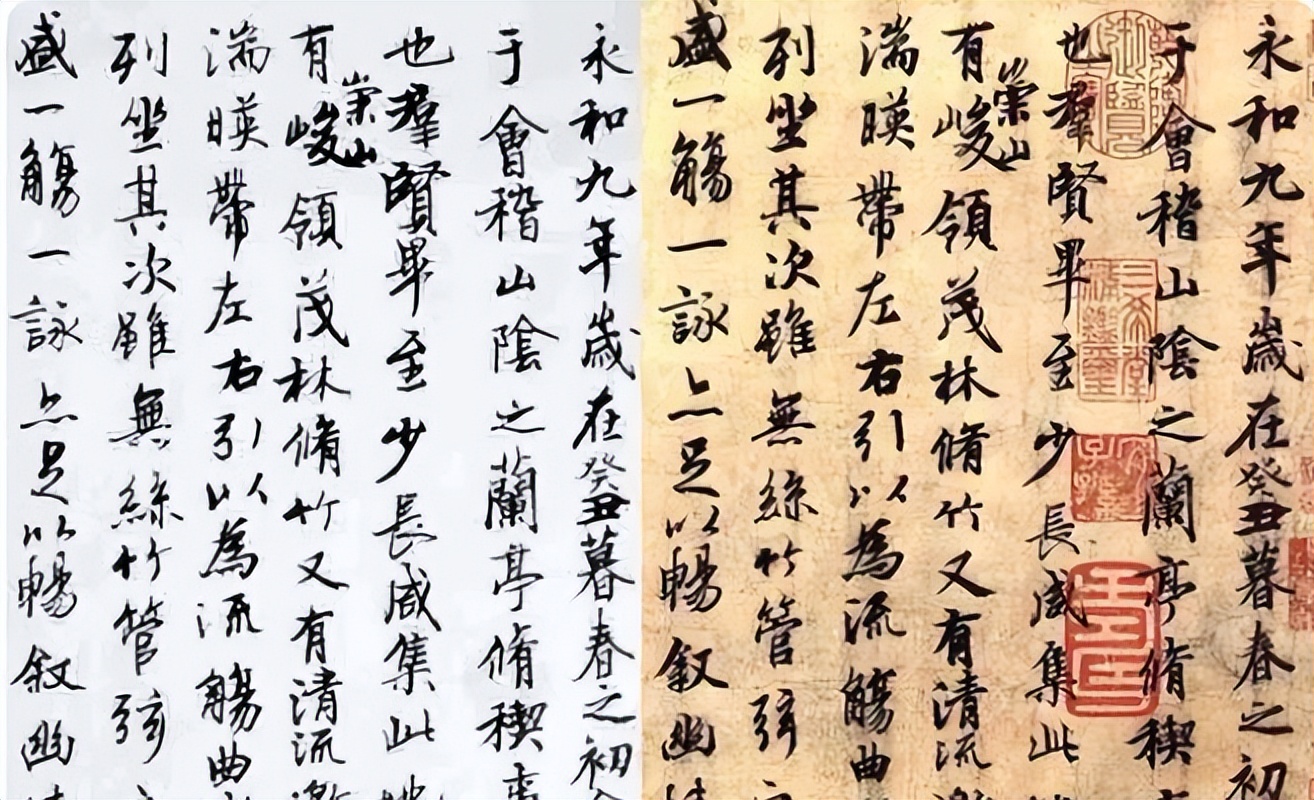 永和九年歲在癸丑暮春之初
于會稽山陰之蘭亭脩稧事
也羣賢畢至少長咸集此
有崇山峻領茂林脩竹又有清流
湍暎帶左右引以為流觴曲
列坐其次雖無絲竹管弦
盛一觴一詠亦足以暢敘幽
永和九年歲在癸丑暮春之初
于會稽山陰之蘭亭脩稧
也羣賢畢至少長咸集此
有崇山峻領茂林脩竹又有清流
湍暎帶左右引以為流觴曲
列坐其次雖無絲竹管弦
盛一觴一詠亦足以暢敘幽